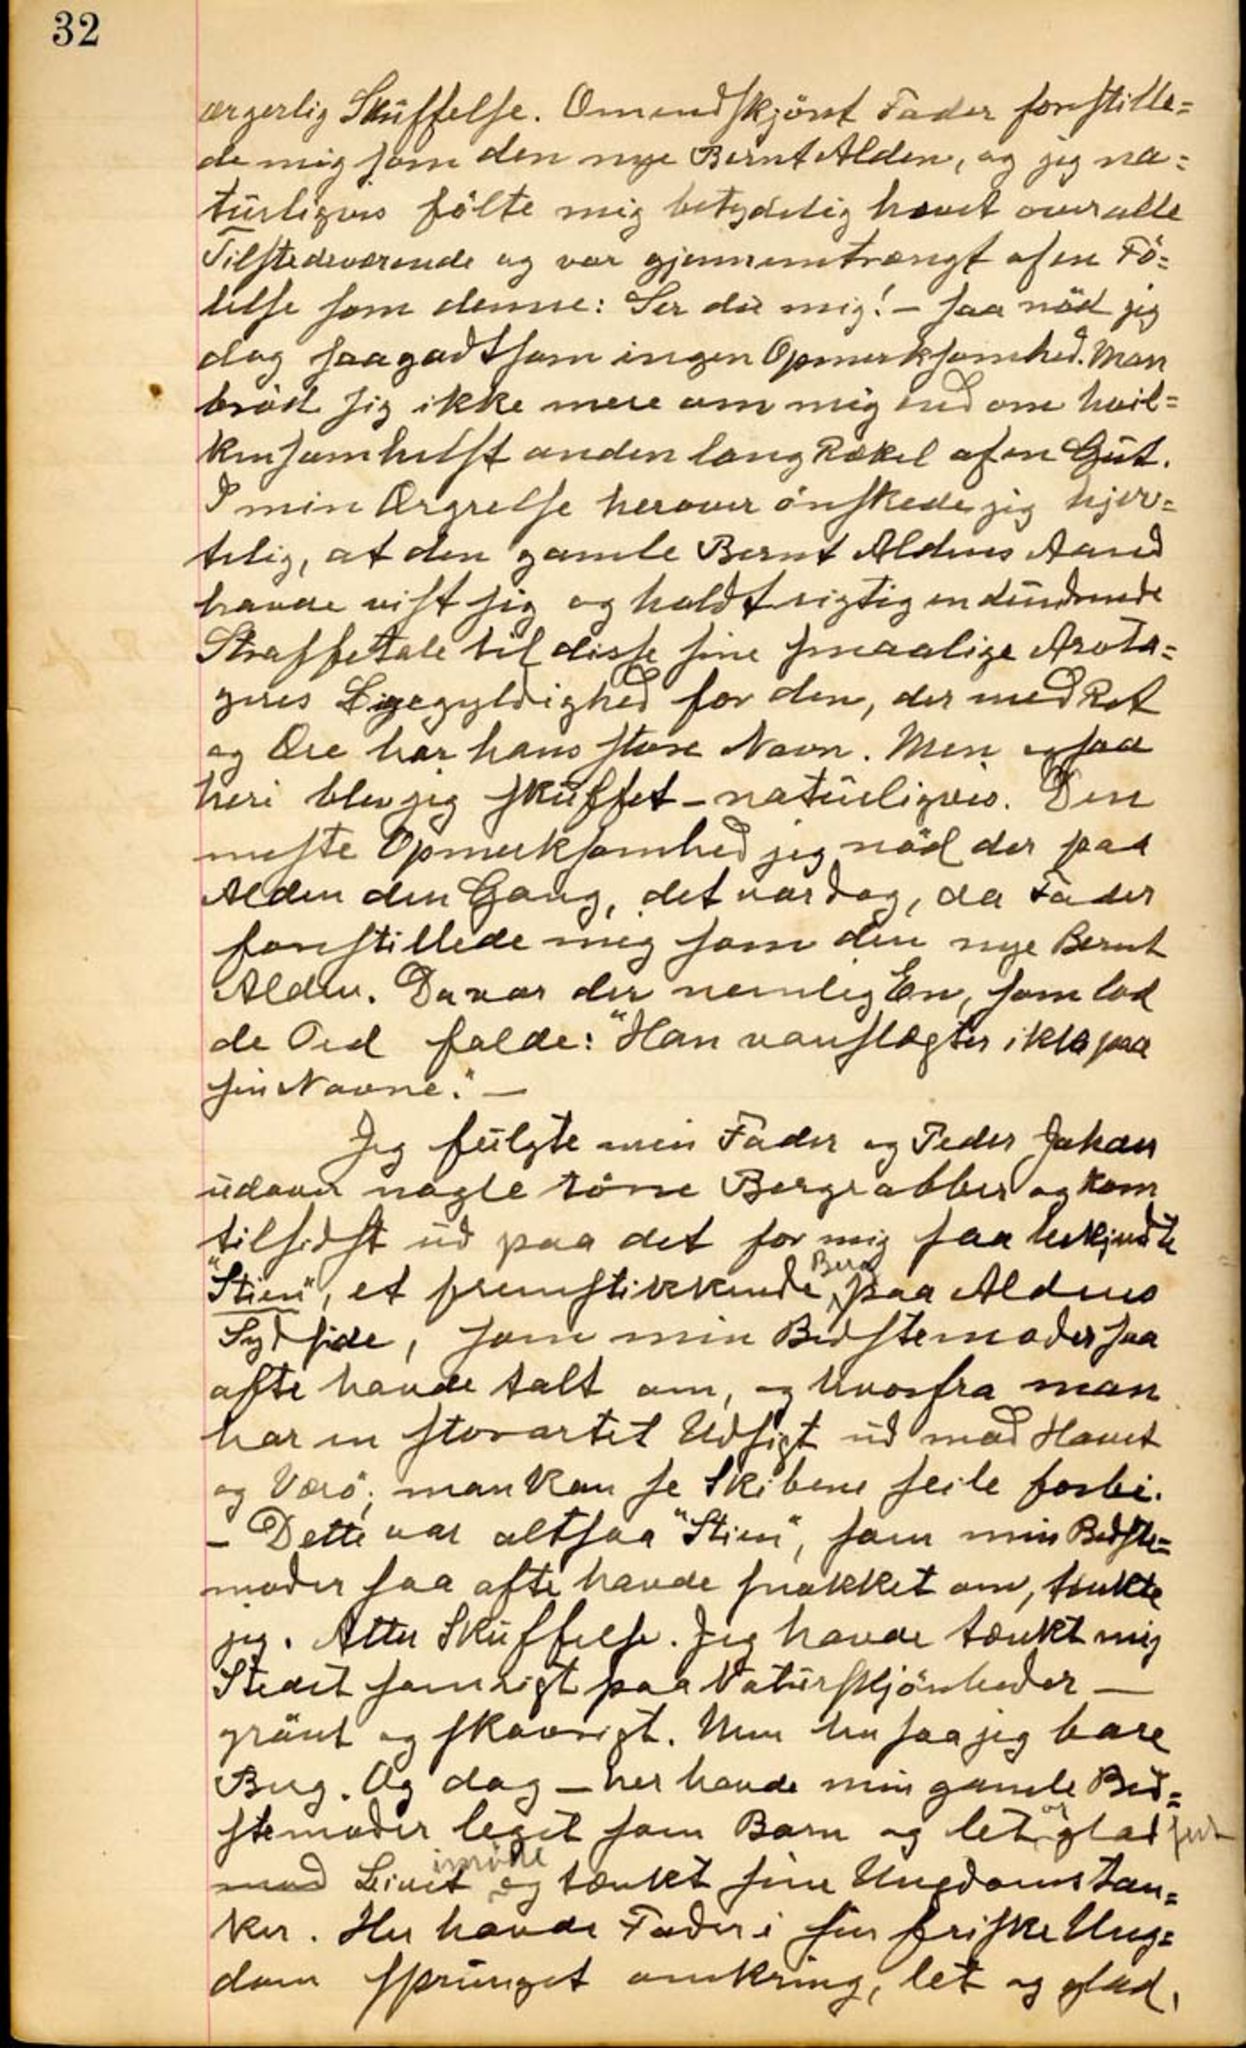 32
ærgerlig Skuffelse. Omendskjönt Fader forestille=
de mig som den nye Bernt Alden, og jeg na=
turligvis fölte mig betydelig hævet over alle
Tilstedeværende og var gjennemtrængt af en Fö=
lelse som denne: Ser du mig! – saa nöd jeg
dog saagodtsom ingen Opmerksomhed. Man
bröd sig ikke mere om mig end om hvil=
kensomhelst anden lang Rækel af en Gut.
I min Ærgrelse herover önskede jeg hjer=
telig, at den gamle Bernt Aldens Aand
havde vist sig og holdt rigtig en dundrende
Straffetale til disse sine smaalige Arvta=
geres Ligegyldighed for den, der med Ret
og Ære har hans store Navn. Men ogsaa
heri blev jeg skuffet – naturligvis. Den
meste Opmerksomhed jeg nöd der paa
Alden den Gang, det var dog, da Fader
forestillede mig som den nye Bernt
Alden. Da var der nemlig En, som lod
de Ord falde: "Han vanslægter ikke paa
sin Navne." –
Jeg fulgte min Fader og Peder Johan
udover nogle törre Bergrabber og kom
tilsidst ud paa det for mig saa bekjendte
"Stien", et fremstikkende Berg paa Aldens
Sydside, som min Bedstemoder saa
ofte havde talt om, og hvorfra man
har en storartet Udsigt ud mod Havet
og Værö; man kan se Skibene seile forbi.
– Dette var altsaa "Stien", som min Bedste=
moder saa ofte havde snakket om, tænkte
jeg. Atter Skuffelse. Jeg havde tænkt mig
Stedet saa rigt paa Naturskjönheder –
grönt og skovrigt. Men her saa jeg bare
Berg. Og dog – her havde min gamle Bed=
stemoder leget som Barn og let og glad
med Livet imöde og tænkt sine Ungdomstan=
ker. Her havde Fader i sin friske Ung=
dom sprunget omkring, let og glad,